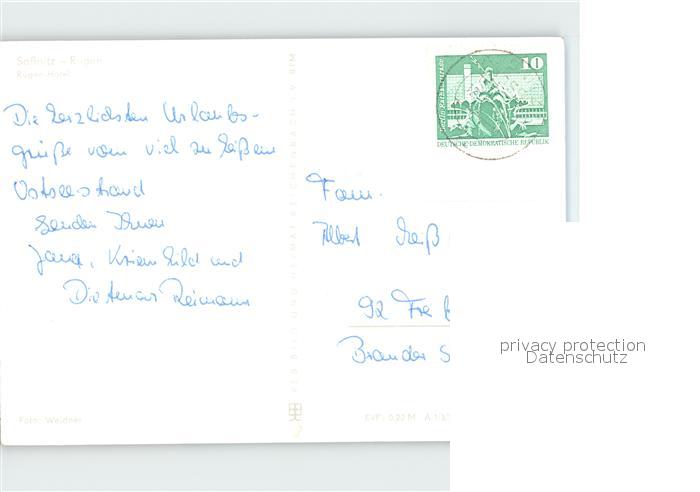 Saßnitz - Rügen
Rügen-Hotel
Die herzlichsten Urlaubs-
grüße vom viel zu heißen
Ostseestrand
senden Ihnen
Jana, Kriemhild und
Dietmar Reimann
Foto: Weidner
VEB BILD UND HEIMAT REICHENBACH I. V. BIM
EVP: 0,20 M A 1/
10
Berlin, Rathausstraße
DEUTSCHE DEMOKRATISCHE REPUBLIK
Fam.
Albert
92 Frei
Brander S
privacy protection
Datenschutz